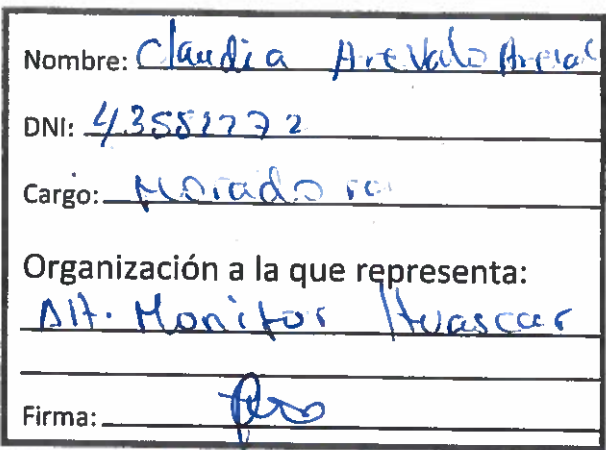 Nombre: Claudia Arevalo
DNI:
Cargo: Moradora
Organización a la que representa:
Alt. Monitor Huascar
Firma: